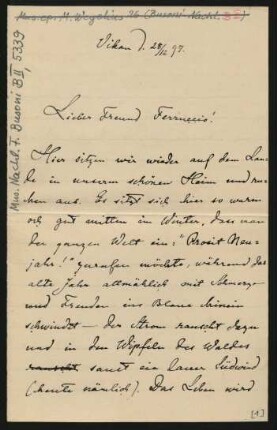 Mus. ep. M. Wegelius 26 (Busoni-Nachl. B II)
Mus. Nachl. F. Busoni B II, 5339
Vikan d. 28/12 97.
Lieber Freund Ferruccio!
Hier sitzen wir wieder auf dem Lan-
de in unserem schönen Heim und ru-
hen aus. Es sitzt sich hier so warm
und gut mitten im Winter, dass man
der ganzen Welt ein: "Prosit Neu-
jahr!" zurufen möchte, während das
alte Jahr allmählich mit Schmerzen
und Freuden ins Blaue hinein
schwindet – der Strom rauscht dazu
und in den Wipfeln des Waldes
rauscht saust ein lauer Südwind
(heute nämlich). Das Leben wird
[1]